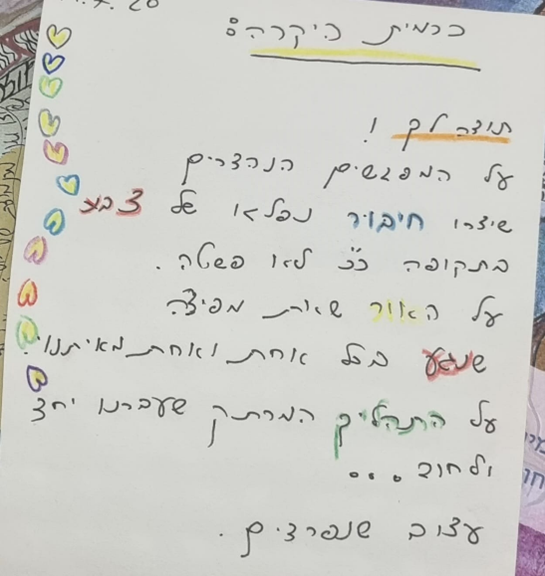 כרמית היקרה:
תודה לך !
על המפגשים הנהדרים
שיצרו חיבור נפלא של צבע
בתקופה כ"כ לא פשוטה.
על האור שאת מפיצה
שנגע בכל אחת ואחת מאיתנו.
על התהליך המרתק שעברנו יחד
ולחוד...
עצוב שנפרדים.